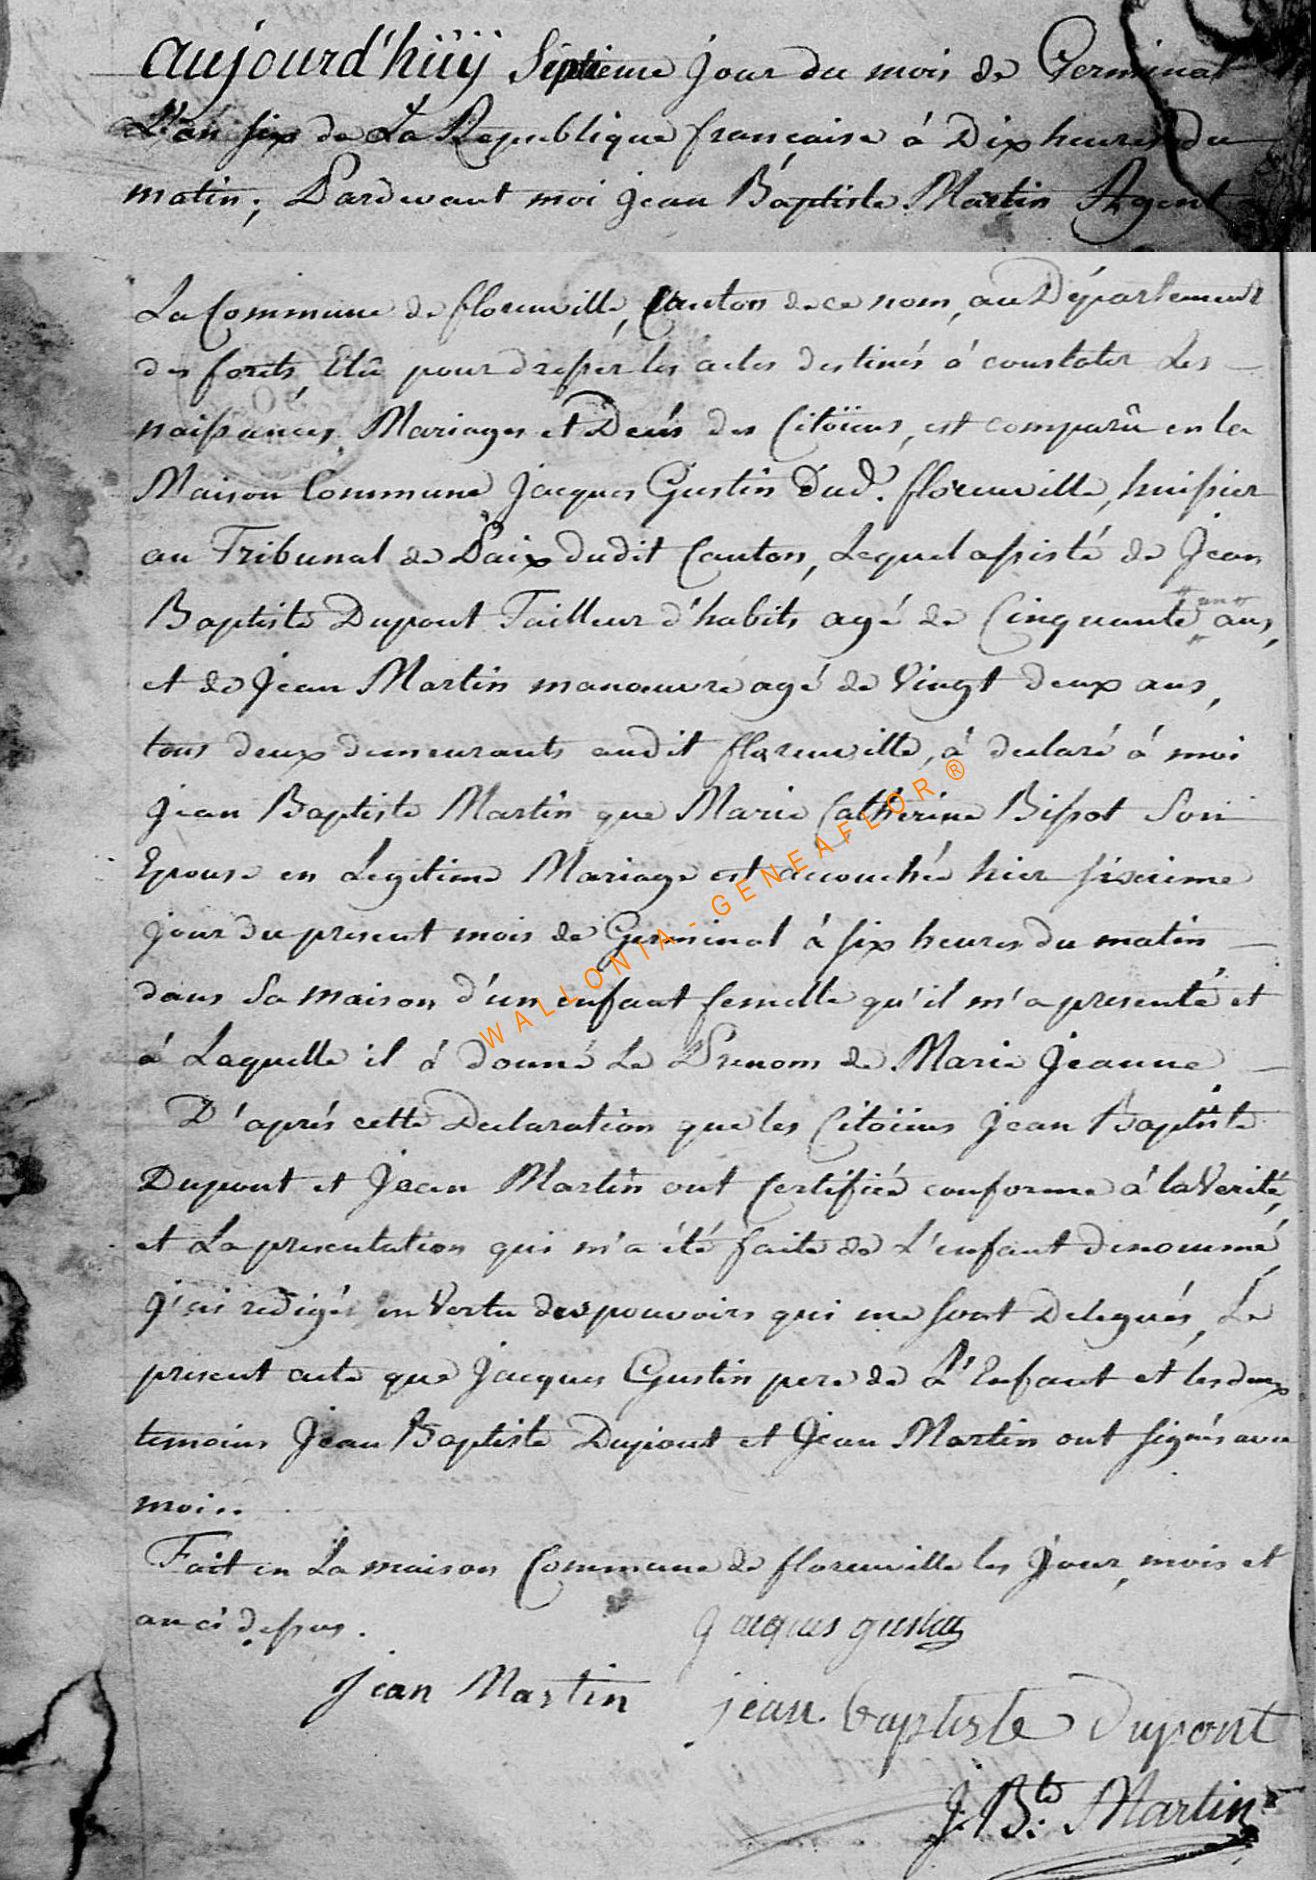 aujourd'hüÿ Septieme jour du mois de Germinal
L'an six de La Republique française à Dix heures du
matin; Pardevant moi jean Baptiste Martin Agent
La Commune de florenville, Canton de ce nom, au Département
des forêts, Elû pour dresser les actes destinés à constater Les
naissances, Mariages et Decés des Citoïens, est comparû en la
Maison Commune Jacques Gustin dud. florenville, huissier
au Tribunal de Paix dudit Canton, Lequel assisté de Jean
Baptiste Dupont Tailleur d'habits agé de Cinquante ans,
et de Jean Martin manœuvre agé de Vingt deux ans,
tous deux demeurants audit florenville, à declaré à moi
Jean Baptiste Martin que Marie Catherine Bissot Son
Epouse en Légitime Mariage est accouchée hier sixieme
jour du present mois de Germinal à six heures du matin
dans Sa maison d'un enfant femelle qu'il m'a presenté et
à Laquelle il à donné Le Prenom de Marie Jeanne
D'après cette Declaration que les Citoïens Jean Baptiste
Dupont et Jean Martin ont Certifiée conforme à la Verité,
et La presentation qui m'a été faite de L'enfant denommé,
J'ai redigé en Vertu des pouvoirs qui me sont Delegués, Le
present acte que Jacques Gustin pere de L'Enfant et les deux
temoins Jean Baptiste Dupont et Jean Martin ont signés avec
moi.
Fait en La maison Commune de florenville les Jour, mois et
an ci dessus.
jacques gustin
jean Martin
jean baptiste Dupont
J. Bte Martin
WALLONIA - GENEAFLOR ®